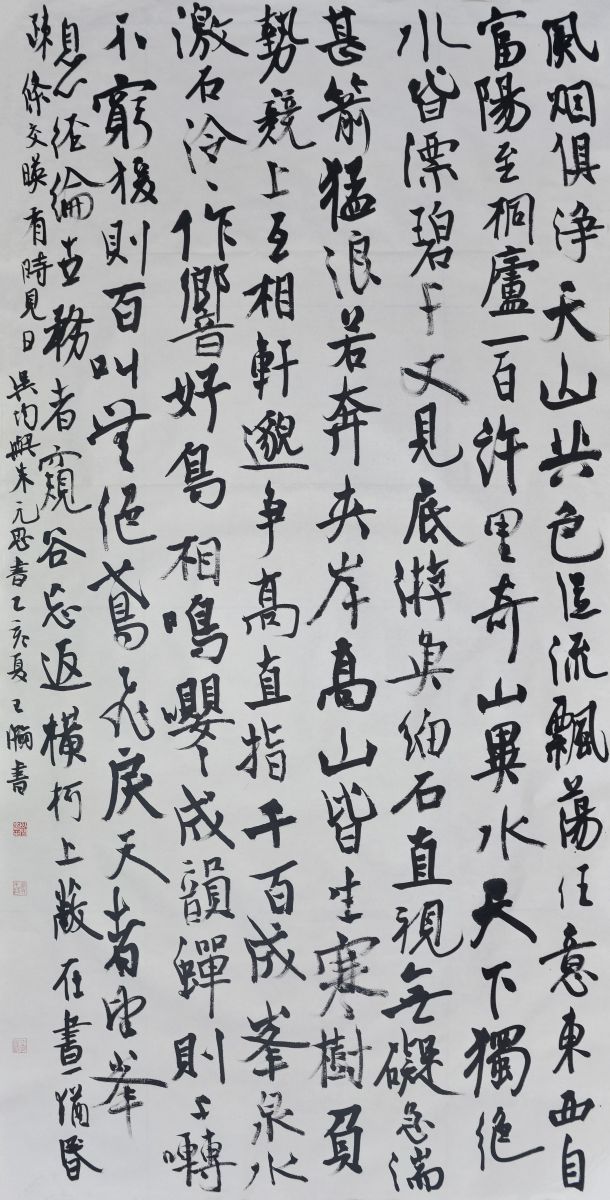 風烟俱淨天山共色從流飄蕩任意東西自
富陽至桐廬一百許里奇山異水天下獨絕
水皆漂碧千丈見底游魚細石直視無礙急湍
甚箭猛浪若奔夹岸高山皆生寒樹負
勢競上互相軒邈争高直指千百成峯泉水
激石泠、作響好鳥相鳴嚶、成韻蟬則千囀
不窮猨則百叫無絕鳶飛戾天者望峯
息心經綸世務者窺谷忘返橫柯上蔽在晝猶昏
疎條交暎有時見日 吳均與朱元思書 亥夏 王 書